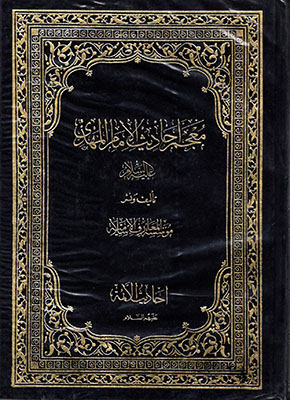 معجم احاديث الامام المهدي
عليه السلام
تأليف ونشر
مؤسسة المعارف الاسلامية
احاديث الائمة
عليهم السلام